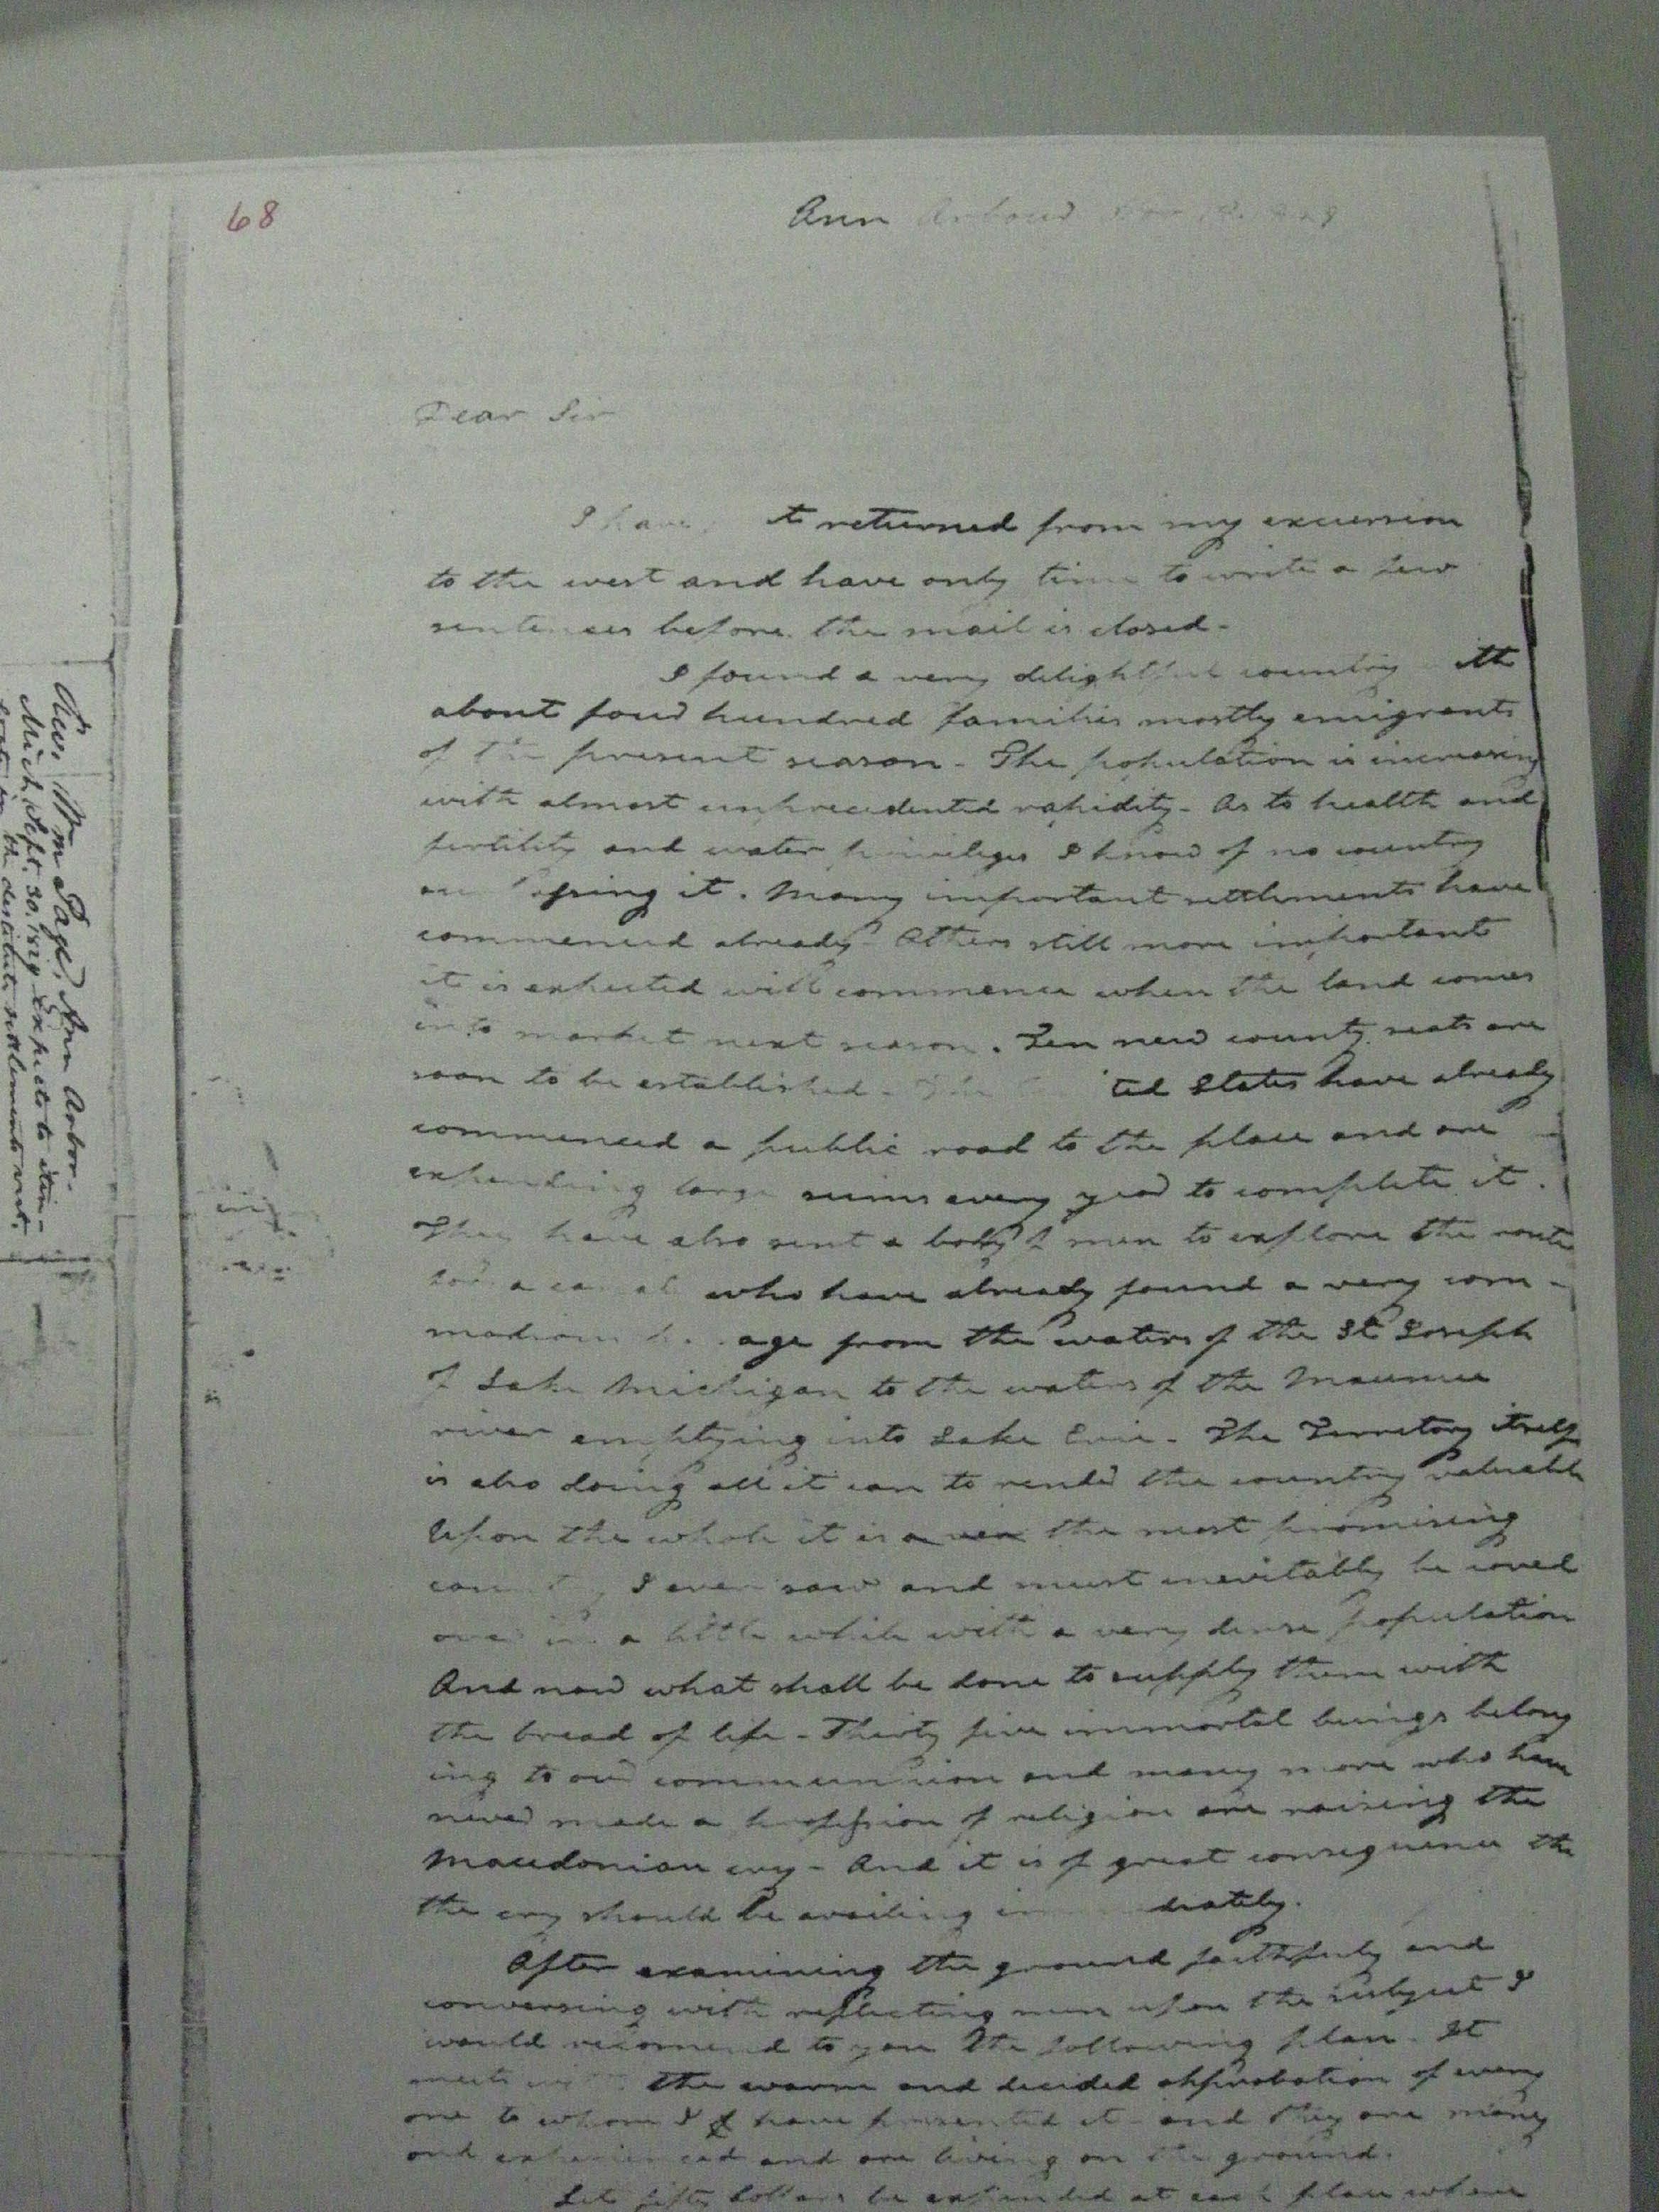 68
Ann Arbour
Dear Sir
I have returned from my excursion
to the west and have only time to write a few
sentences before the mail is closed -
I found a very delightful country ith
about four hundred families mostly emigrants
of the present season - The population is increasing
with almost unprecedented rapidity - As to health and
fertility and water privileges I know of no country
it. Many important settlements have
commenced already - Others still more important
it is expected will commence when the land comes
into market next season. Ten new county seats are
soon to be established - The ted States have already
commenced a public road to the place and are
expending large sums every year to complete it.
They have also sent a body of men to explore the route
for a canal who have already found a very com-
modious age from the waters of the St Joseph
of Lake Michigan to the waters of the Maumee
river emptying into Lake Erie - The Territory itself
is also doing all it can to render the country valuable
Upon the whole it is the most promising
country I ever saw and must inevitably be coved
over in a little while with a very dense population
And now what shall be done to supply them with
the bread of life - Thirty five immortal beings belong
ing to our communion and many more who have
never made a profession of religion are raising the
Macedonian cry - And it is of great consequence
the cry should be availing diately.
After examining the ground faithfully and
conversing with reflecting men upon the subject I
would recomend to you the following plan. It
meets the warm and decided approbation of every
one to whom I have presented it - and they are many
and experienced and are living on the ground.
Let fifty dollars be expended at each place where
Rev. Wm Page, Ann Arbor.
Mich. Sept. 30. Expects to itin-
the destitute settlements west.